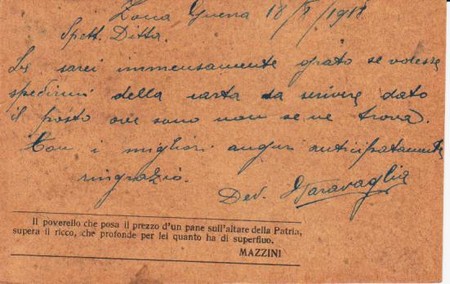 Zona Guerra 18/X/1917
Spett. Ditta.
Le sarei immensamente grato se volesse
spedirmi della carta da scrivere dato
il posto ove sono non se ne trova.
Con i migliori auguri anticipatamente
ringrazio.
Dev. Garavaglia
Il poverello che posa il prezzo d'un pane sull'altare della Patria,
supera il ricco, che profonde per lei quanto ha di superfluo.
MAZZINI